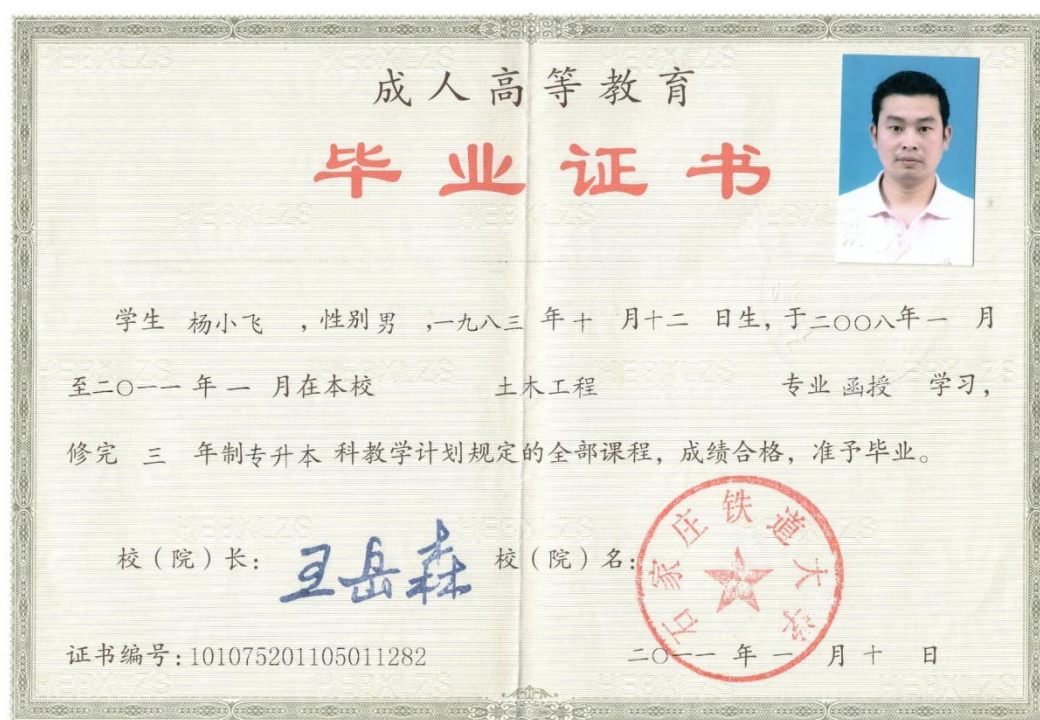 成人高等教育
毕业证书
学生 杨小飞 ，性别 男 ，一九八三 年 十 月 十二 日生，于 二〇〇八 年 一 月
至 二〇一一 年 一 月在本校 土木工程 专业 函授 学习，
修完 三 年制 专升本 科教学计划规定的全部课程，成绩合格，准予毕业。
校（院）长： 王岳森 校（院）名：
石家庄铁道大学
证书编号：101075201105011282 二〇一一 年 一 月 十 日
HEBXLZS